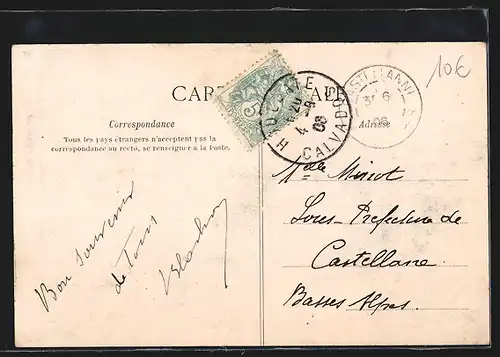 CARTE POSTALE
10€
Correspondance
Tous les pays étrangers n'acceptent pas la
correspondance au recto, se renseigner à la Poste.
HOULGATE
CALVADOS
CASTELLANNE
Adresse
Bon Souvenir
de Tous
Melle Minot
Sous-Préfecture de
Castellane
Basses Alpes